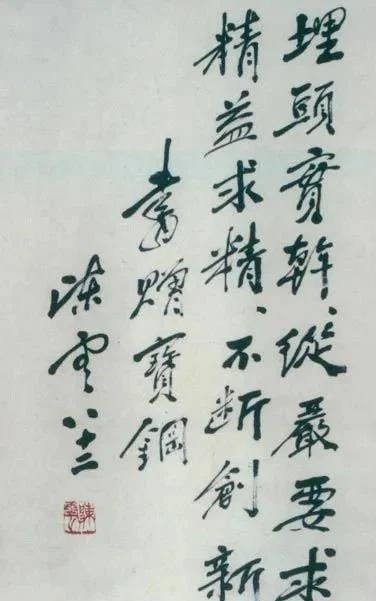 埋頭實幹、從嚴要求
精益求精、不断創新
書贈寶鋼
陳雲 八十二
陳雲